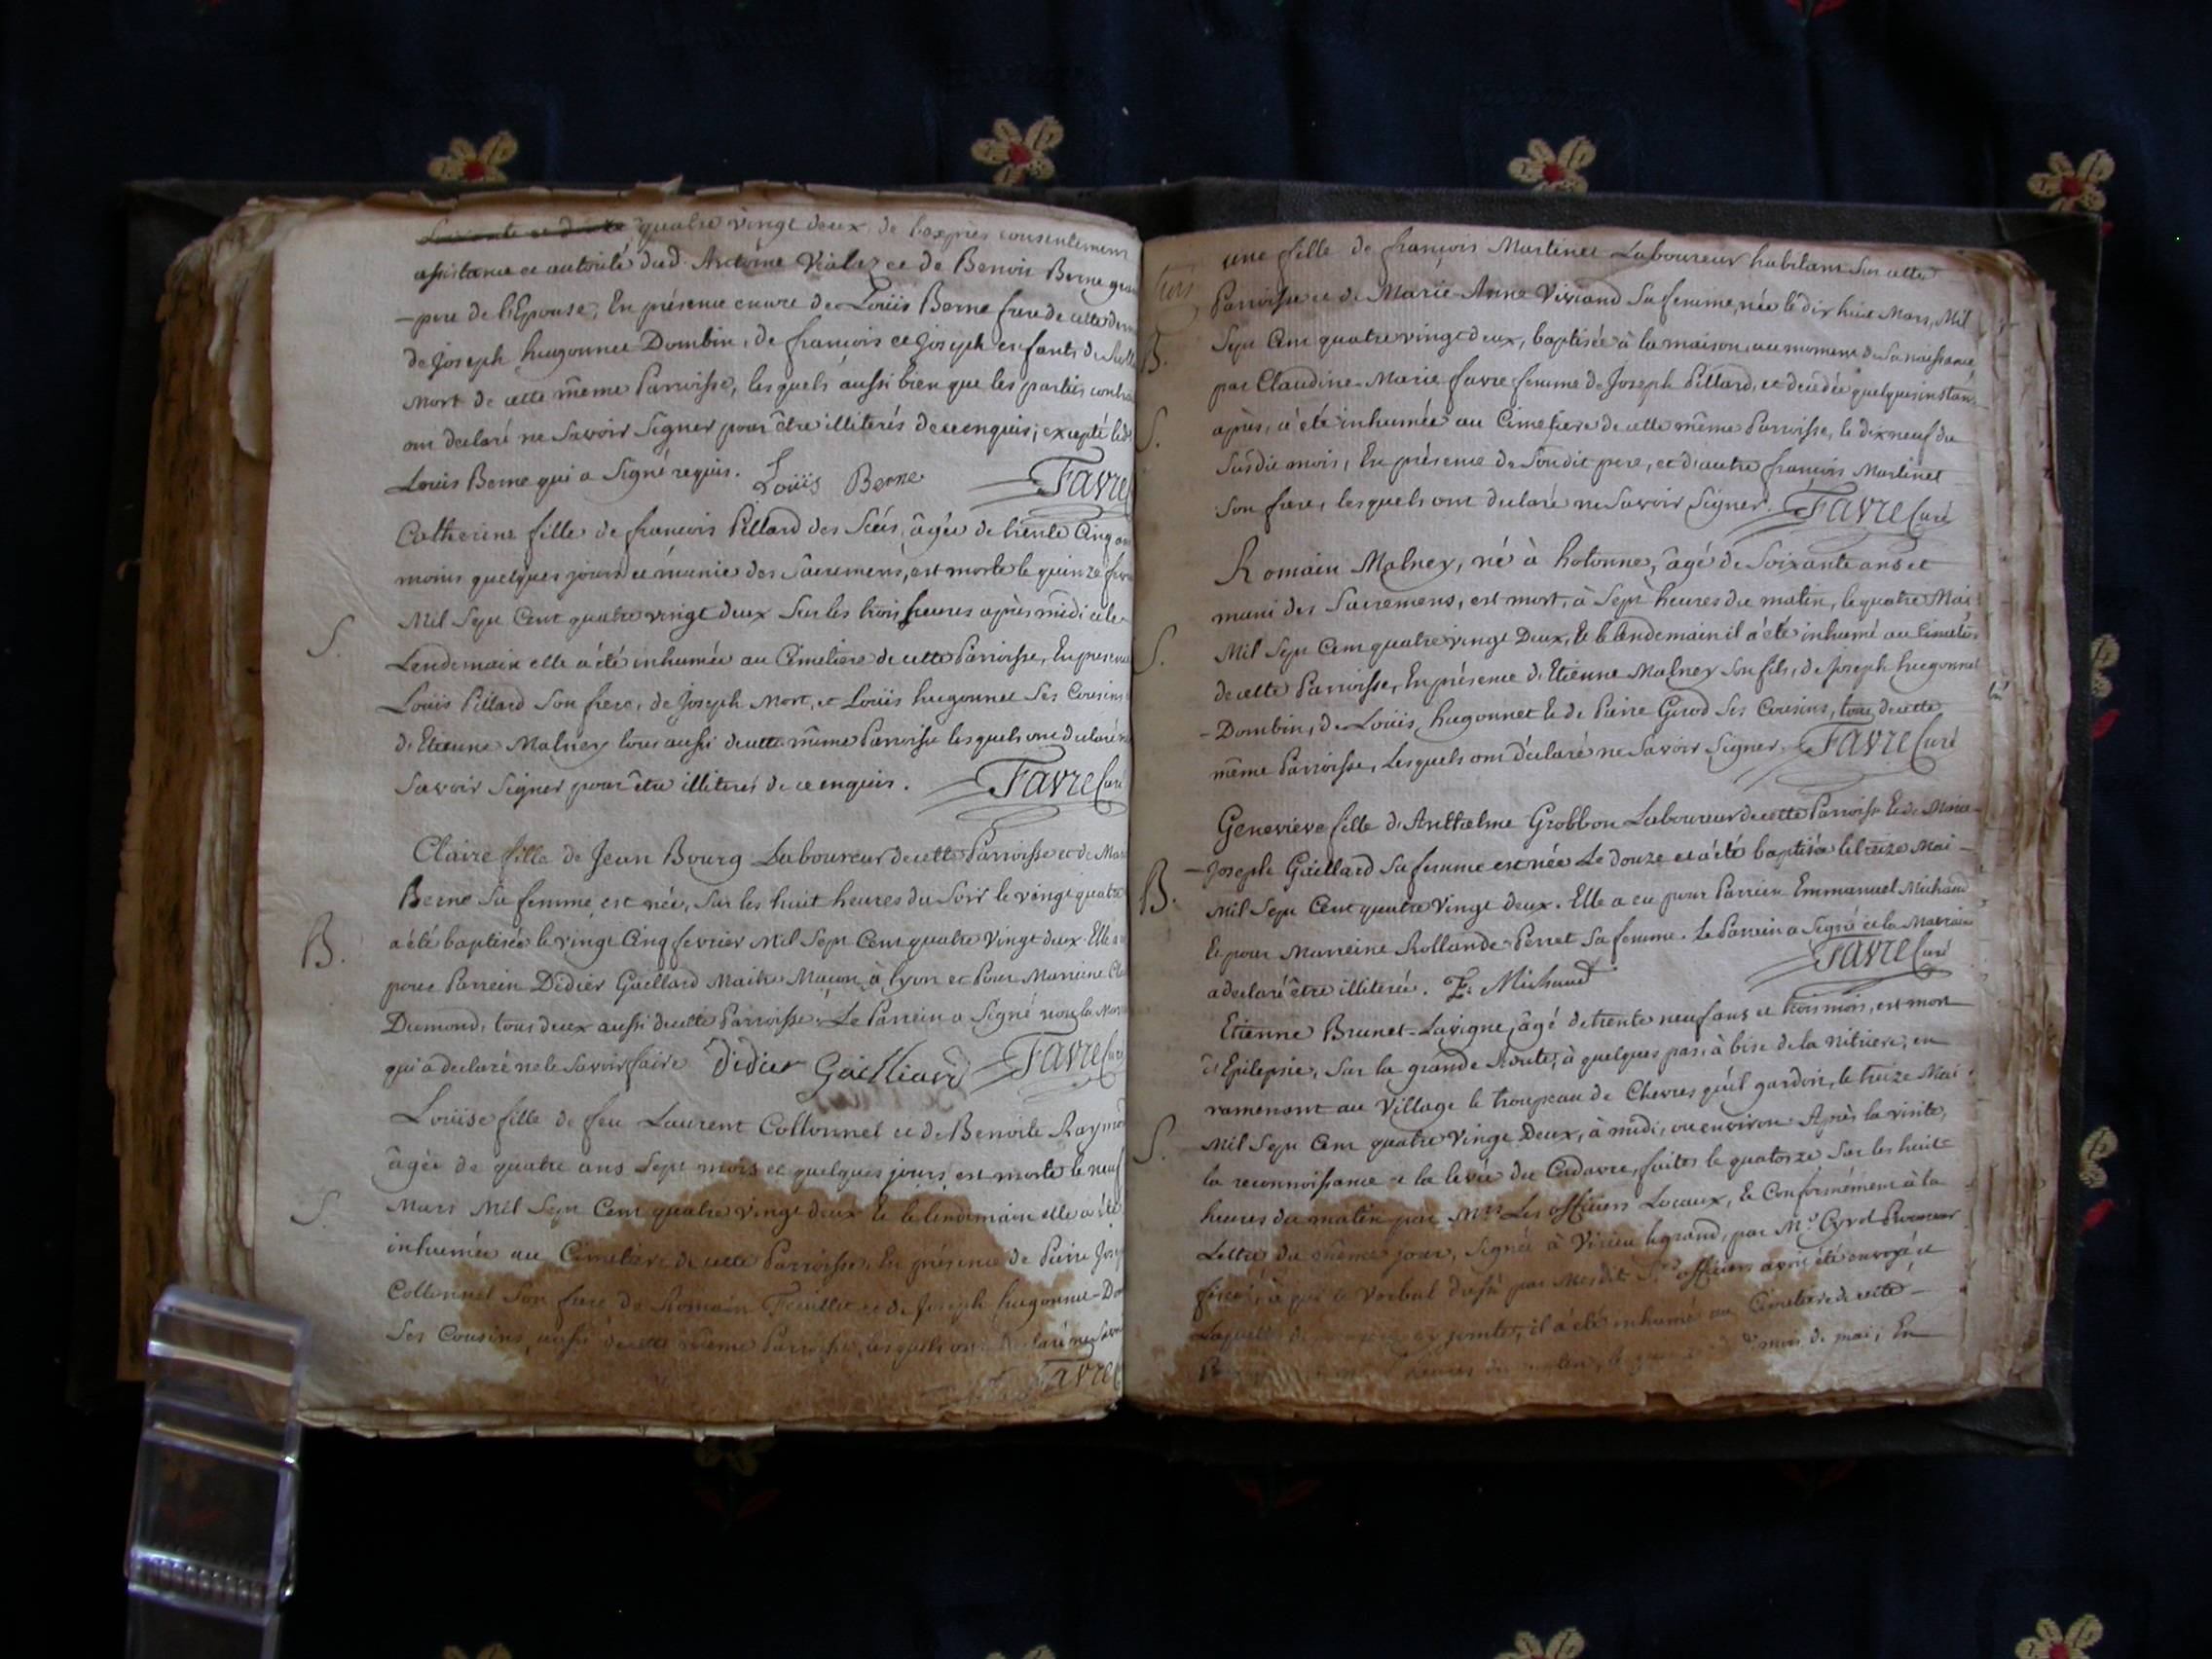 quatre vingt deux, de l'exprès consentement
assistance et autorité dud. Antoine Vialez et de Benoit Berne
-pere de l'Epouse; En présence encore de Louis Berne frere de cette
de Joseph hugonnet Dombin, de francois et Joseph enfants de
Mort de cette même Parroisse, lesquels aussi bien que les parties
ont declaré ne Savoir Signer pour être illiterés de ce enquis; excepté led.
Louis Berne qui a Signé requis. Louis Berne Favre
Catherine fille de francois Pillard des Scies, âgée de trente Cinq ans
moins quelques jours et munie des Sacremens, est morte le quinze
Mil Sept Cent quatre vingt deux Sur les trois heures après midi et le
S.
Lendemain elle a été inhumée au Cimetiere de cette Parroisse, En presence
Louis Pillard Son frere, de Joseph Mort, et Louis hugonnet Ses Cousins
d'Etienne Malney tous aussi de cette même Parroisse lesquels ont declaré
Savoir Signer pour être illiterés de ce enquis. Favre Curé
Claire fille de Jean Bourg Laboureur de cette Parroisse et de
Berne Sa femme est née, Sur les huit heures du Soir le vingt quatre
B.
a été baptisée le vingt Cinq fevrier Mil Sept Cent quatre Vingt deux. Elle a
pour Parrein Didier Gaillard Maitre Maçon à lyon et Pour Marreine
Dumond, tous deux aussi de cette Parroisse. Le Parrein a Signé non la
qui a declaré ne le Savoir faire Didier Gailliard Favre Curé
Louise fille de feu Laurent Collonnet et de Benoite Raymond
âgée de quatre ans Sept mois et quelques jours est morte le neuf
S.
Mars Mil Sept Cent quatre vingt deux Et le lendemain elle a été
inhumée au Cimetiere de cette Parroisse, En présence de Pierre
Collonnet Son frere, de Romain et de Joseph hugonnet-
Ses Cousins, aussi de cette même Parroisse, lesquels ont declaré ne
Favre
une fille de francois Martinet Laboureur habitant Sur cette
Parroisse et de Marie Anne Viviand Sa femme, née le dix huit Mars, Mil
B.
Sept Cent quatre vingt deux, baptisée à la maison, au moment de Sa naissance
par Claudine-Marie favre femme de Joseph Pillard, et decedée quelques instans
S.
après, a été inhumée au Cimetiere de cette même Parroisse, le dix neuf du
Susdit mois, En présence de Son dit pere, et d'autre francois Martinet
Son frere, lesquels ont declaré ne Savoir Signer. Favre Curé
Romain Malney, né à hotonne, âgé de Soixante ans et
muni des Sacremens, est mort, à Sept heures du matin, le quatre Mai
S.
Mil Sept Cent quatre vingt Deux, Et le lendemain il a été inhumé au Cimetiere
de cette Parroisse, En présence d'Etienne Malney Son fils, de Joseph hugonnet
-Dombin, de Louis hugonnet Et de Pierre Girod Ses Cousins, tous de cette
même Parroisse, Lesquels ont déclaré ne Savoir Signer. Favre Curé
Genevieve fille d'Anthelme Grobbon Laboureur de cette Parroisse Et de Marie-
-Joseph Gaillard Sa femme est née Le douze et a été baptisée le treize Mai-
B.
Mil Sept Cent quatre Vingt deux. Elle a eu pour Parrein Emmanuel Michaud
Et pour Marreine Rollande Perret Sa femme. Le Parrein a Signé et la Marreine
a declaré être illiterée. E. Michaud Favre Curé
Etienne Brunet-Lavigne, âgé de trente neuf ans et trois mois, est mort
d'Epilepsie, Sur la grande Route, à quelques pas, à bise de la Nitriere, en
ramenant au Village le troupeau de Chevres qu'il gardoit, le treize Mai
S.
Mil Sept Cent quatre Vingt Deux, à midi, ou environ. Après la visite,
la reconnoissance et la levée du Cadavre, faites le quatorze Sur les huit
heures du matin par Mrs Les officiers Locaux, Et Conformément à la
Lettre du même jour, Signée à Virieu legrand, par Mr. Procureur
fiscal, à qui le Verbal dressé par Mesdits Srs officiers avoit été envoyé, et
Laquelle jointe, il a été inhumé au Cimetiere de cette-
heures du matin, mois de mai; En